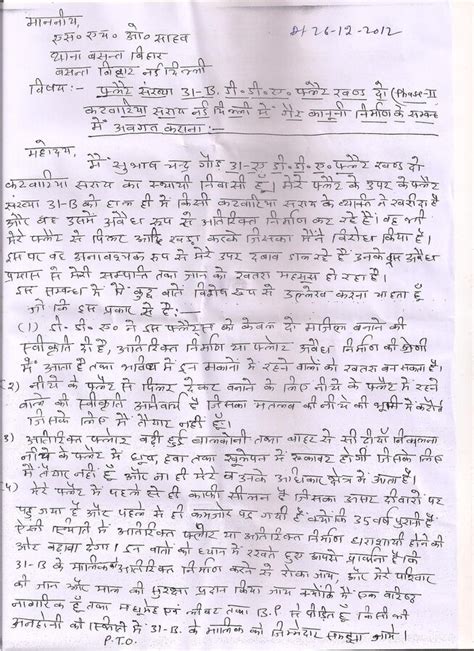 dt 26-12-2012
माननीय,
एस॰ एच॰ ओ॰ साहब
थाना बसन्त बिहार
बसन्त बिहार नई दिल्ली
विषय:- फ्लैट संख्या 31-B. डी॰ डी॰ ए॰ फ्लैट खण्ड दो (Phase-II
कटवारिया सराय नई दिल्ली में गैर कानूनी निर्माण के सम्बन्ध
में अवगत कराना:-
महोदय,
मैं सुभाष चन्द्र गौड़ 31-ए डी॰ डी॰ ए॰ फ्लैट खण्ड दो
कटवारिया सराय का स्थायी निवासी हूँ। मेरे फ्लैट के उपर के फ्लैट
संख्या 31-B को हाल ही में किसी कटवारिया सराय के व्यक्ति ने खरीदा है
और वह उसमें अवैध रूप से अतिरिक्त निर्माण कर रहे हैं। वह भी
मेरे फ्लैट से पिलर आदि खड़ा करके जिसका मैंने विरोध किया है।
इस पर वह अनावश्यक रूप से मेरे उपर दबाव डाल रहे हैं उनके इस अवैध
प्रयास से मेरी सम्पत्ति तथा जान को खतरा महसूस हो रहा है।
इस सम्बन्ध में मैं कुछ बातें विशेष रूप से उल्लेख करना चाहता हूँ
जो कि इस प्रकार से है:-
(1) डी॰ डी॰ ए॰ ने इस फ्लैट्स को केवल दो मंजिल बनाने की
स्वीकृति दी है, अतिरिक्त निर्माण या फ्लोर अवैध निर्माण की श्रेणी
में आता है तथा भविष्य में इन मकानों में रहने वालों को खतरा बन सकता है।
2) नीचे के फ्लैट से पिलर देकर बनाने के लिए नीचे के फ्लैट में रहने
वाले की स्वीकृति अनिवार्य है जिसका मतलब की नीचे की भूमि में
जिसके लिए मैं तैयार नहीं हूँ।
3) अतिरिक्त फ्लोर बढ़ी हुई बालकोनी तथा बाहर से सीढ़ीयाँ निकालना
नीचे के फ्लैट में धूप हवा तथा खुलेपन में रूकावट होगी जिसके लिए
मैं तैयार नहीं हूँ और ना ही मेरे व उनके अधिकार क्षेत्र में आता है।
4) मेरे फ्लैट में पहले से ही काफी सीलन है जिसका असर दीवारों पर
पड़ गया है और पहले से ही कमजोर पड़ गयी है क्योंकि 35 वर्ष पुरानी है
ऐसी स्थिति में अतिरिक्त फ्लोर या अतिरिक्त निर्माण धराशायी होने की
ओर बढ़ावा देगा। इन बातों को ध्यान में रखते हुए आपसे प्रार्थना है कि
31-B के मालिक अतिरिक्त निर्माण करने से रोका जाय, और मेरे परिवार
की जान और माल की सुरक्षा प्रदान किया जाय क्योंकि मैं एक वरिष्ठ
नागरिक हूँ तथा मधुमेह एवं लीवर तथा B.P से पीड़ित हूँ किसी भी
अनहोनी की स्थिति में 31-B. के मालिक को जिम्मेदार समझा जाये।
P.T.O.